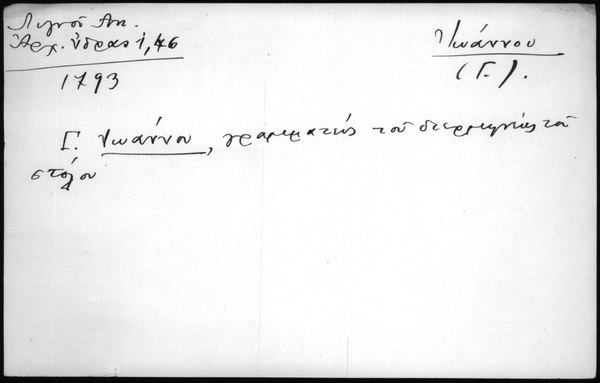 Λιγνοῦ Ἀν.
Ἀρχ. Ὕδρας 1, 46
1793
Ἰωάννου
(Γ.).
Γ. Ἰωάννου, γραμματεὺς τοῦ διερμηνέως τοῦ
στόλου